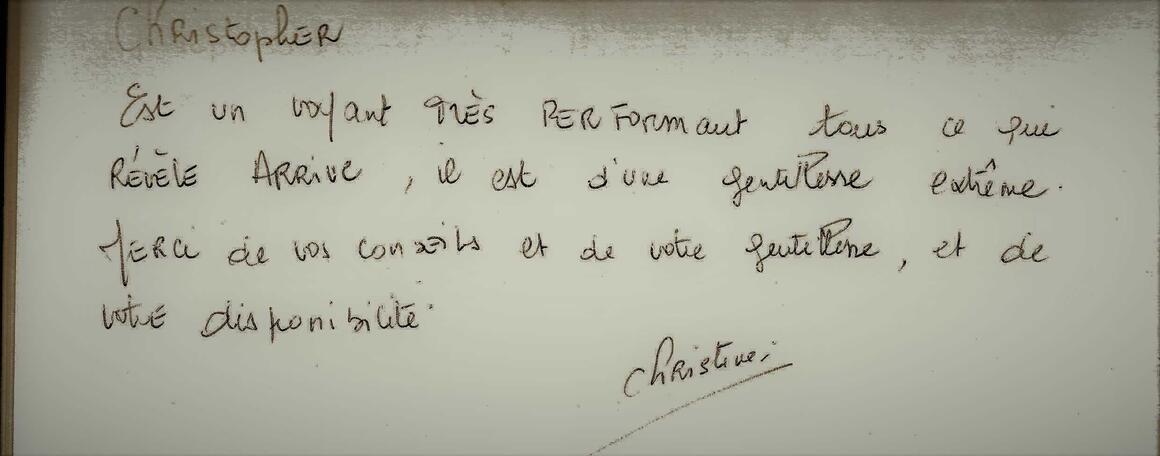 Christopher
Est un voyant TRÈS PERFORMant tous ce qui
RÉVÈLE ARRIVE, il est d'une gentillesse extrême.
MERCi de vos conseils et de votre gentillesse, et de
votre disponibilité.
Christine.